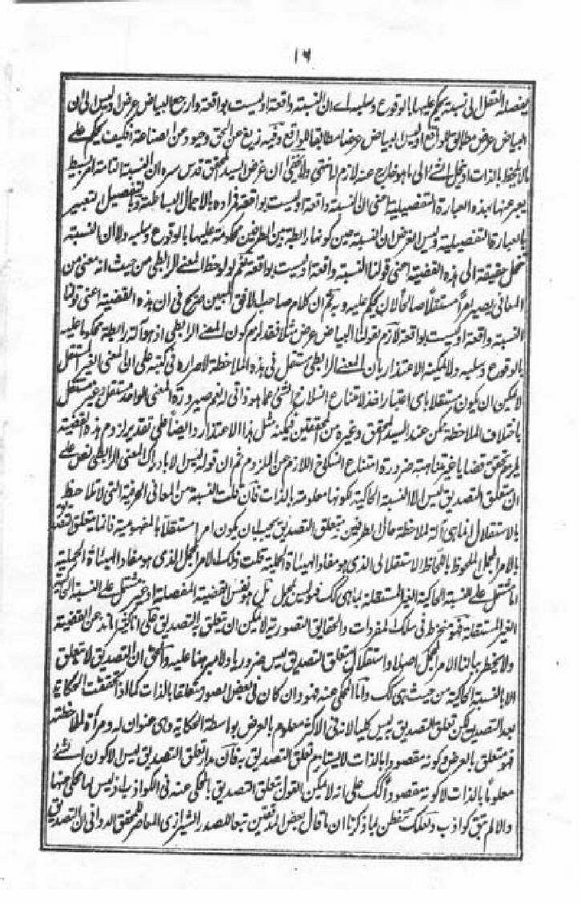 ١٦
يفصله العقل الى نسبة يحكم عليها بالوقوع وسلبه اے ان النسبة واقعة او ليست بواقعة وارجع البياض عرض او ليس الى ان
البياض عرض مطابق للواقع او ليس البياض عرضا مطابقا للواقع وفيه زيغ عن الحق وحيود عن الصناعة فكيف يحكم على
ما لا يلحظ بالذات او ينحل الشئ الى ما هو خارج عنه لازم ولا يخفى ان غرض السيد المحقق قدس سره ان النسبة التامة امر بسيط
يعبر عنها بهذه العبارة التفصيلية اعنى ان النسبة واقعة او ليست بواقعة فمراده بالاجمال البساطة وبالتفصيل التعبير
بالعبارة التفصيلية وليس الغرض ان النسبة حين كونها رابطة بين الطرفين محكومة عليها بالوقوع وسلبه ولا ان النسبة
تنحل حقيقة الى هذه القضية اعنى قولنا النسبة واقعة او ليست بواقعة نعم لو لوحظ المعنى الرابطى من حيث انه معنى من
المعانى يصير امرا مستقلا صالحا لان يحكم عليه وبه ثم ان كلام صاحب الافق المبين صريح فى ان هذه القضية اعنى قولنا
النسبة واقعة او ليست بواقعة لازم لقولنا البياض عرض مثلا فقد لزم كون المعنى الرابطى اذ هو حالة رابطة محكوما عليه
بالوقوع وسلبه ولا يمكنه الاعتذار بان المعنى الرابطى مستقل فى هذه الملاحظة لاصراره فى كتبه على ان المعنى الغير المستقل
لا يمكن ان يكون مستقلا باى اعتبار اخذ لامتناع انسلاخ الشئ عما هو ذاتى له نعم صيرورة المعنى الواحد مستقلا وغير مستقل
باختلاف الملاحظة يمكن عند السيد المحقق وغيره من المحققين فيمكنه مثل هذا الاعتذار وايضا على تقدير لزوم هذه القضية
يلزم تحقق قضايا غير متناهية ضرورة امتناع انسلاخ اللازم عن الملزوم ثم ان قوله ليس لا بادراك المعنى الرابطى نص على
ان متعلق التصديق ليس الا النسبة الحاكية لكونها معلومة بالذات فان قلت النسبة من المعانى الحرفية التى لا تلاحظ
بالاستقلال انما هى آلة لملاحظة حال الطرفين ومتعلق التصديق يجب ان يكون امرا مستقلا بالمفهومية فانما متعلق التصديق
بالامر المجمل الملحوظ باللحاظ الاستقلالى الذى هو مفاد الهيئة الحملية قلت ذلك الامر المجمل الذى هو مفاد الهيئة الحملية
اما مشتمل على النسبة الحاكية الغير المستقلة بما هى كك فهو ليس بمجمل بل هو نفس القضية المفصلة او غير مشتمل على النسبة الحاكية
الغير المستقلة فهو منخرط فى سلك المفردات والحقايق التصورية لا يمكن ان يتعلق به التصديق
ولا يخطر ببالنا الامر المجمل اصلا واستقلال متعلق التصديق ليس ضروريا ولا مبرهنا عليه والحق ان التصديق لا يتعلق
الا بالنسبة الحاكية من حيث هى كك واما المحكى عنه فهو وان كان فى بعض الصور متعلقا بالذات كما اذا تحققت الحكاية
بعد التصديق لكن تعلق التصديق به ليس كليا لانه فى الاكثر معلوم بالعرض بواسطة الحكاية وهى عنوان له ومرآة لملاحظته
فهو متعلق بالعرض وكونه مقصودا بالذات لا يستلزم تعلق التصديق به فان مدار تعلق التصديق ليس الا كون الشئ
معلوما بالذات لا كونه مقصودا كك على انه لا يمكن القول بتعلق التصديق بالمحكى عنه فى الكواذب اذ ليس لها محكى عنها
والا لم تبق كواذب ولعلك تتفطن مما ذكرنا ان ما قال بعض المدققين تبعا للصدر الشيرازى المعاصر للمحقق الدوانى ان التصديق